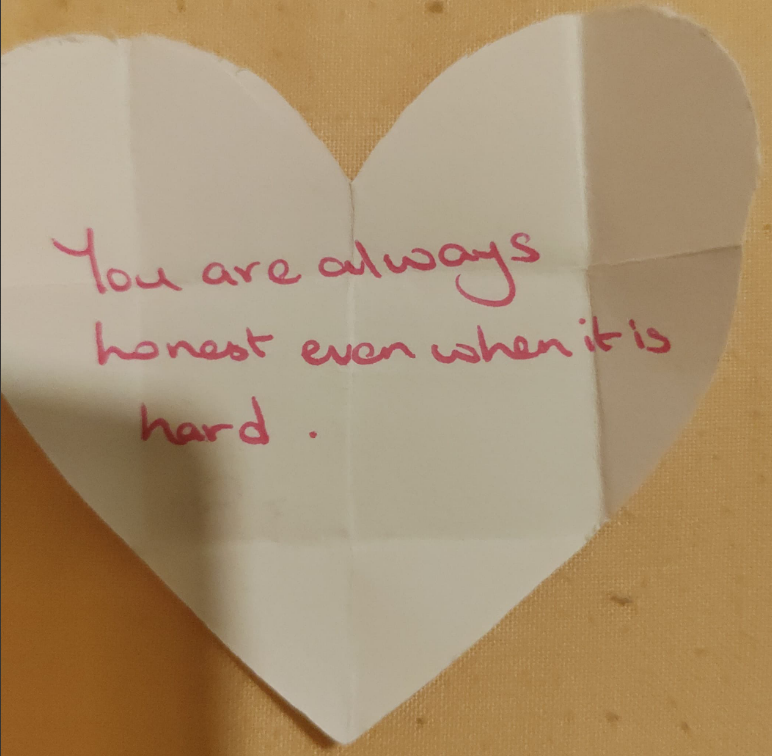 You are always
honest even when it is
hard .